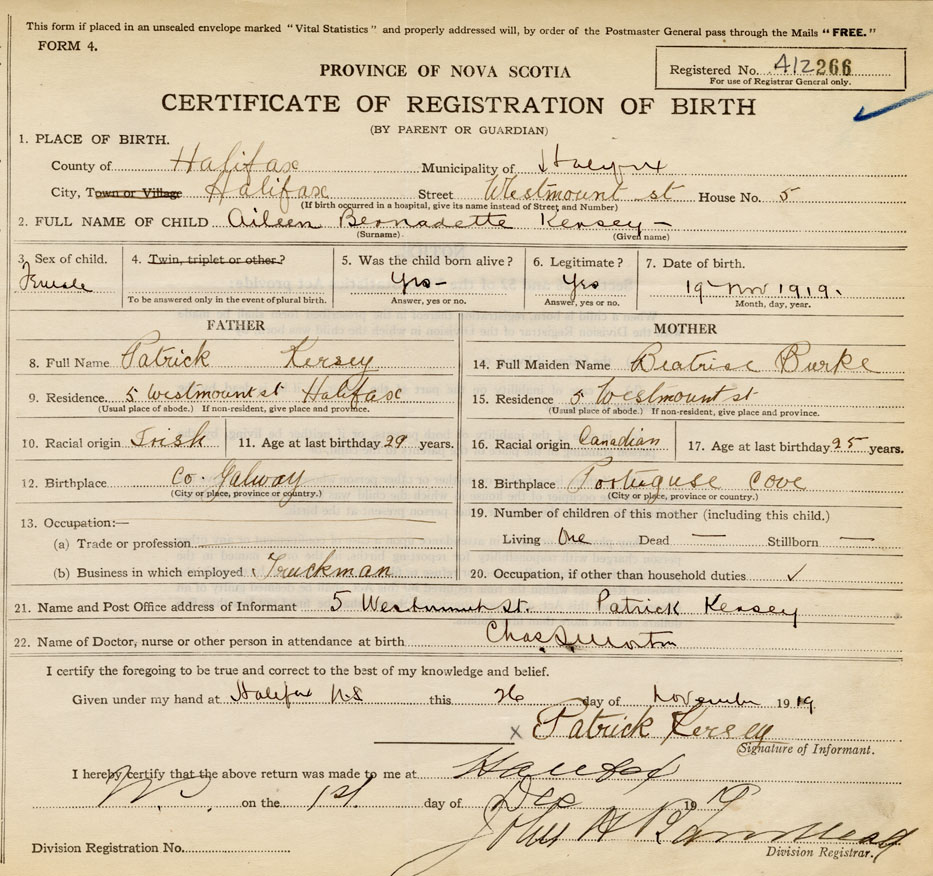 This form if placed in an unsealed envelope marked "Vital Statistics" and properly addressed will, by order of the Postmaster General pass through the Mails "FREE."
FORM 4.
Registered No. 412266
For use of Registrar General only.
PROVINCE OF NOVA SCOTIA
CERTIFICATE OF REGISTRATION OF BIRTH
(BY PARENT OR GUARDIAN)
1. PLACE OF BIRTH.
County of Halifax Municipality of Halifax
City, Town or Village Halifax Street Westmount st House No. 5
(If birth occurred in a hospital, give its name instead of Street and Number)
2. FULL NAME OF CHILD Aileen Bernadette Kersey -
(Surname) (Given name)
3. Sex of child. 4. Twin, triplet or other? 5. Was the child born alive? 6. Legitimate? 7. Date of birth.
Female Yes - Yes 19th Nov 1919.
To be answered only in the event of plural birth. Answer, yes or no. Answer, yes or no. Month, day, year.
FATHER MOTHER
8. Full Name Patrick Kersey 14. Full Maiden Name Beatrise Burke
9. Residence 5 Westmount st Halifax 15. Residence 5 Westmount st
(Usual place of abode.) If non-resident, give place and province. (Usual place of abode.) If non-resident, give place and province.
10. Racial origin Irish 11. Age at last birthday 29 years. 16. Racial origin Canadian 17. Age at last birthday 25 years.
12. Birthplace Co. Galway 18. Birthplace Portuguse Cove
(City or place, province or country.) (City or place, province or country.)
13. Occupation:— 19. Number of children of this mother (including this child.)
(a) Trade or profession Living One Dead — Stillborn —
(b) Business in which employed Truckman 20. Occupation, if other than household duties ✓
21. Name and Post Office address of Informant 5 Westmount St. Patrick Kersey
22. Name of Doctor, nurse or other person in attendance at birth Chas Morton
I certify the foregoing to be true and correct to the best of my knowledge and belief.
Given under my hand at Halifax N.S this 26 day of November 1919
x Patrick Kersey
Signature of Informant.
I hereby certify that the above return was made to me at Halifax
N.S. on the 1st day of Dec 1919
John A
Division Registration No. Division Registrar.